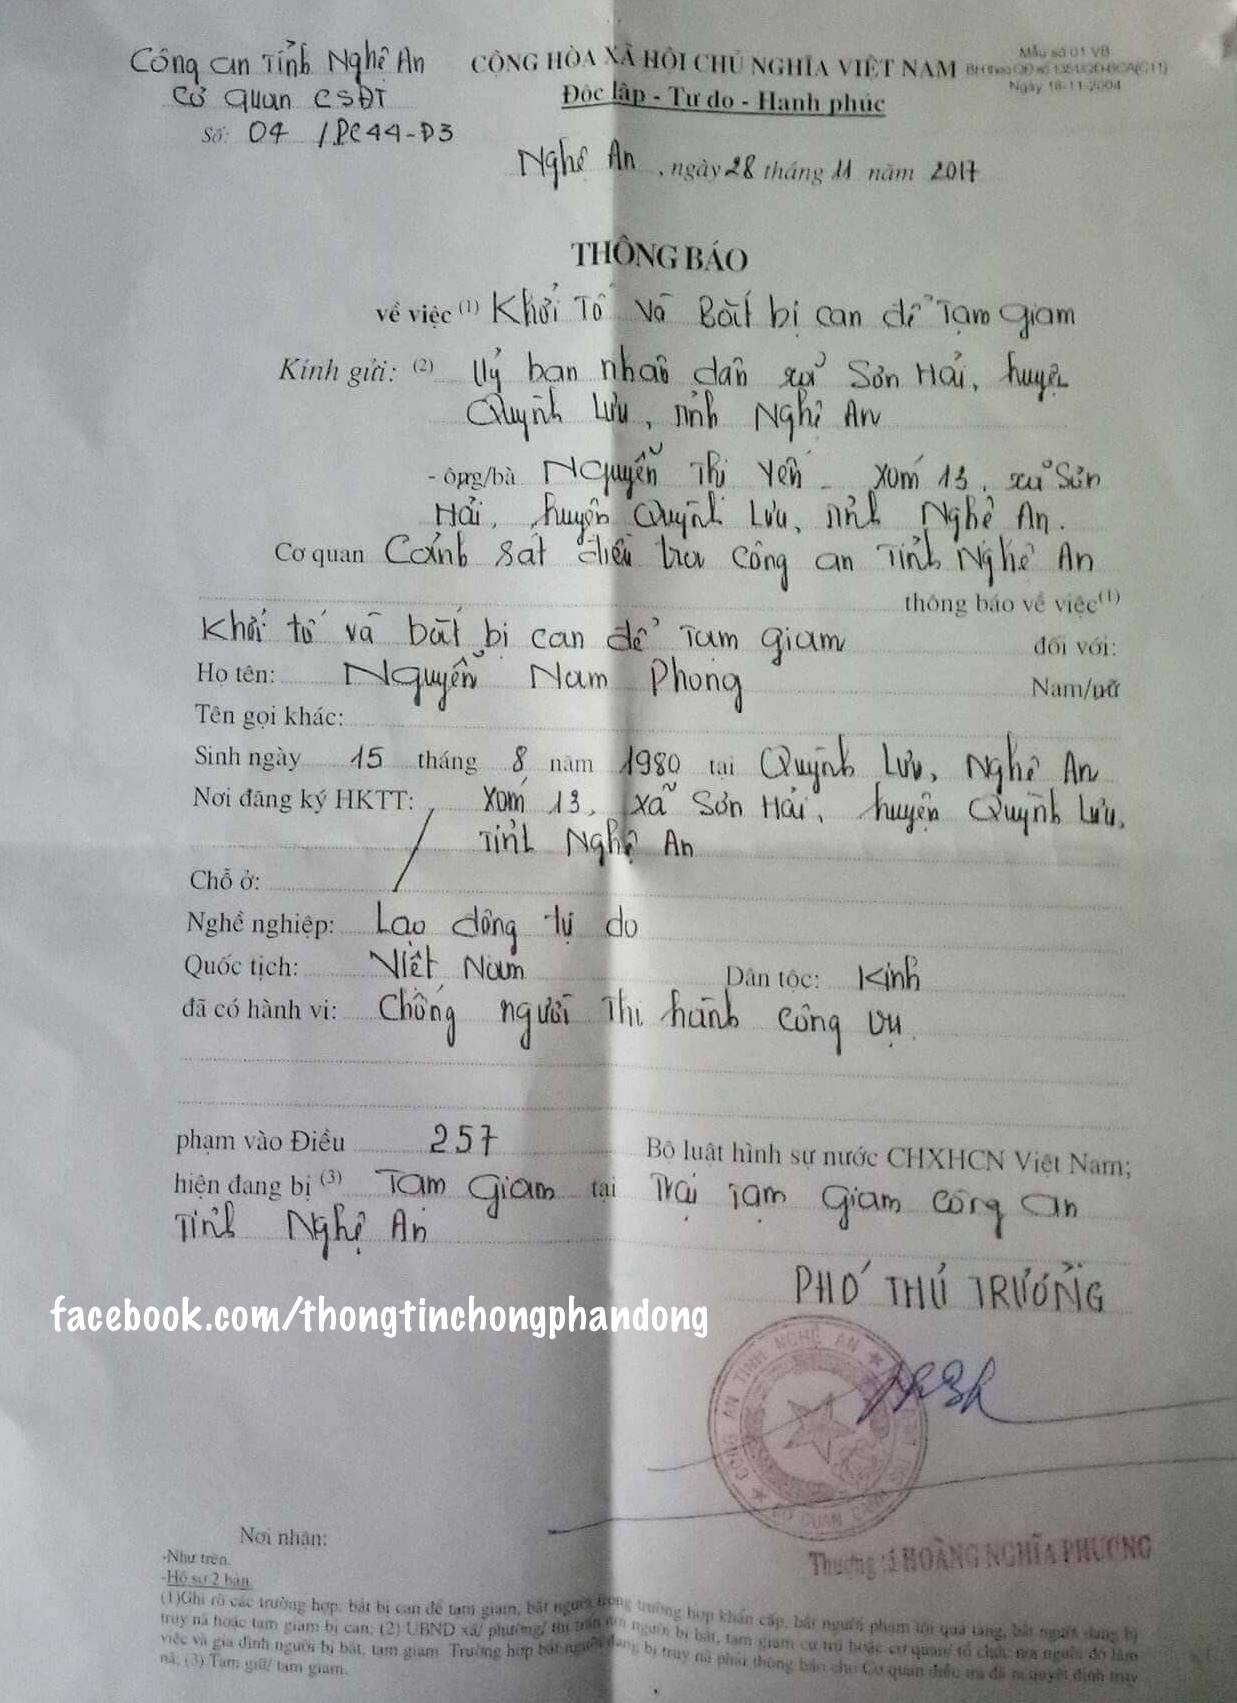 Công an Tỉnh Nghệ An
Cơ quan CSĐT
Số: 04 /PC44-Đ3
CỘNG HÒA XÃ HỘI CHỦ NGHĨA VIỆT NAM
Độc lập - Tự do - Hạnh phúc
Mẫu số 01 VB
Ngày 18-11-2004
Nghệ An, ngày 28 tháng 11 năm 2017
THÔNG BÁO
về việc (1) Khởi Tố Và Bắt bị can để Tạm Giam
Kính gửi: (2) Uỷ ban nhân dân xã Sơn Hải, huyện
Quỳnh Lưu, tỉnh Nghệ An
- ông/bà Nguyễn Thị Yến - Xóm 13, xã Sơn
Hải, huyện Quỳnh Lưu, tỉnh Nghệ An.
Cơ quan Cảnh sát điều tra Công an Tỉnh Nghệ An
thông báo về việc(1)
Khởi tố và bắt bị can để Tạm giam đối với:
Họ tên: Nguyễn Nam Phong Nam/nữ
Tên gọi khác:
Sinh ngày 15 tháng 8 năm 1980 tại Quỳnh Lưu, Nghệ An
Nơi đăng ký HKTT: Xóm 13, xã Sơn Hải, huyện Quỳnh Lưu,
Tỉnh Nghệ An
Chỗ ở:
Nghề nghiệp: Lao động tự do
Quốc tịch: Việt Nam Dân tộc: Kinh
đã có hành vi: Chống người Thi hành công vụ.
phạm vào Điều 257 Bộ luật hình sự nước CHXHCN Việt Nam;
hiện đang bị (3) Tạm Giam tại Trại Tạm Giam Công an
Tỉnh Nghệ An
PHÓ THỦ TRƯỞNG
facebook.com/thongtinchongphandong
CÔNG AN TỈNH NGHỆ AN
CƠ QUAN CẢNH SÁT
Thượng tá HOÀNG NGHĨA PHƯƠNG
Nơi nhận:
-Như trên.
-Hồ sơ 2 bản.
(1)Ghi rõ các trường hợp: bắt bị can để tạm giam, bắt người trong trường hợp khẩn cấp, bắt người phạm tội quả tang, bắt người đang bị
truy nã hoặc tạm giam bị can; (2) UBND xã/ phường/ thị trấn nơi người bị bắt, tạm giam cư trú hoặc cơ quan/ tổ chức nơi người đó làm
việc và gia đình người bị bắt, tạm giam. Trường hợp bắt người đang bị truy nã phải thông báo cho Cơ quan điều tra đã ra quyết định truy
nã; (3) Tạm giữ/ tạm giam.